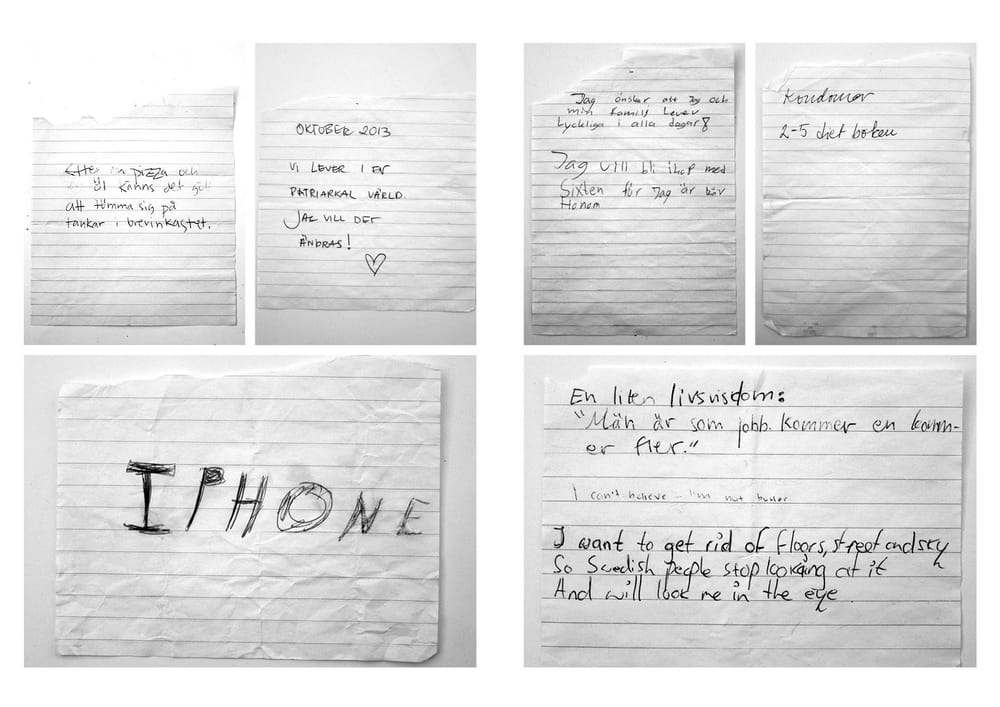 Efter en pizza och
öl känns det gött
att tömma sig på
tankar i brevinkastet.
OKTOBER 2013
VI LEVER I EN
PATRIARKAL VÄRLD.
JAG VILL DET
ÄNDRAS!
Jag önskar att Jag och
min Familj Lever
Lyckliga i alla dagar!
Jag Vill bli ihop med
Sixten för Jag är kär
Honom
Kondomer
2-5 diet boken
IPHONE
En liten livsvisdom:
"Män är som jobb. Kommer en komm-
er fler."
I can't believe I'm not butter
I want to get rid of floors, street and sky
So Swedish people stop looking at it
And will look me in the eye